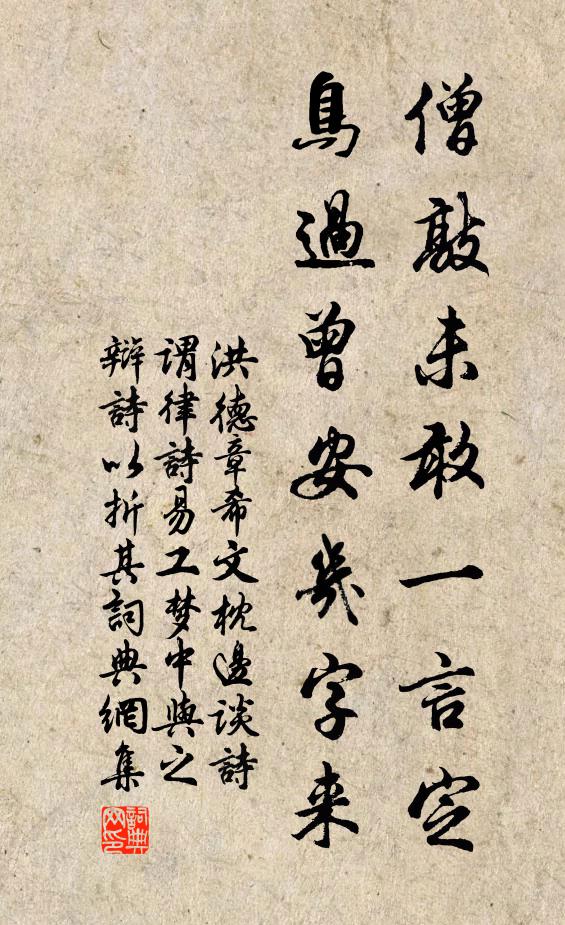 僧敲未敢一言定
鳥過曾安幾字来
洪德章希文枕邊談詩
謂律詩易工梦中與之
辯詩以折其詞典網集
詞典
网印